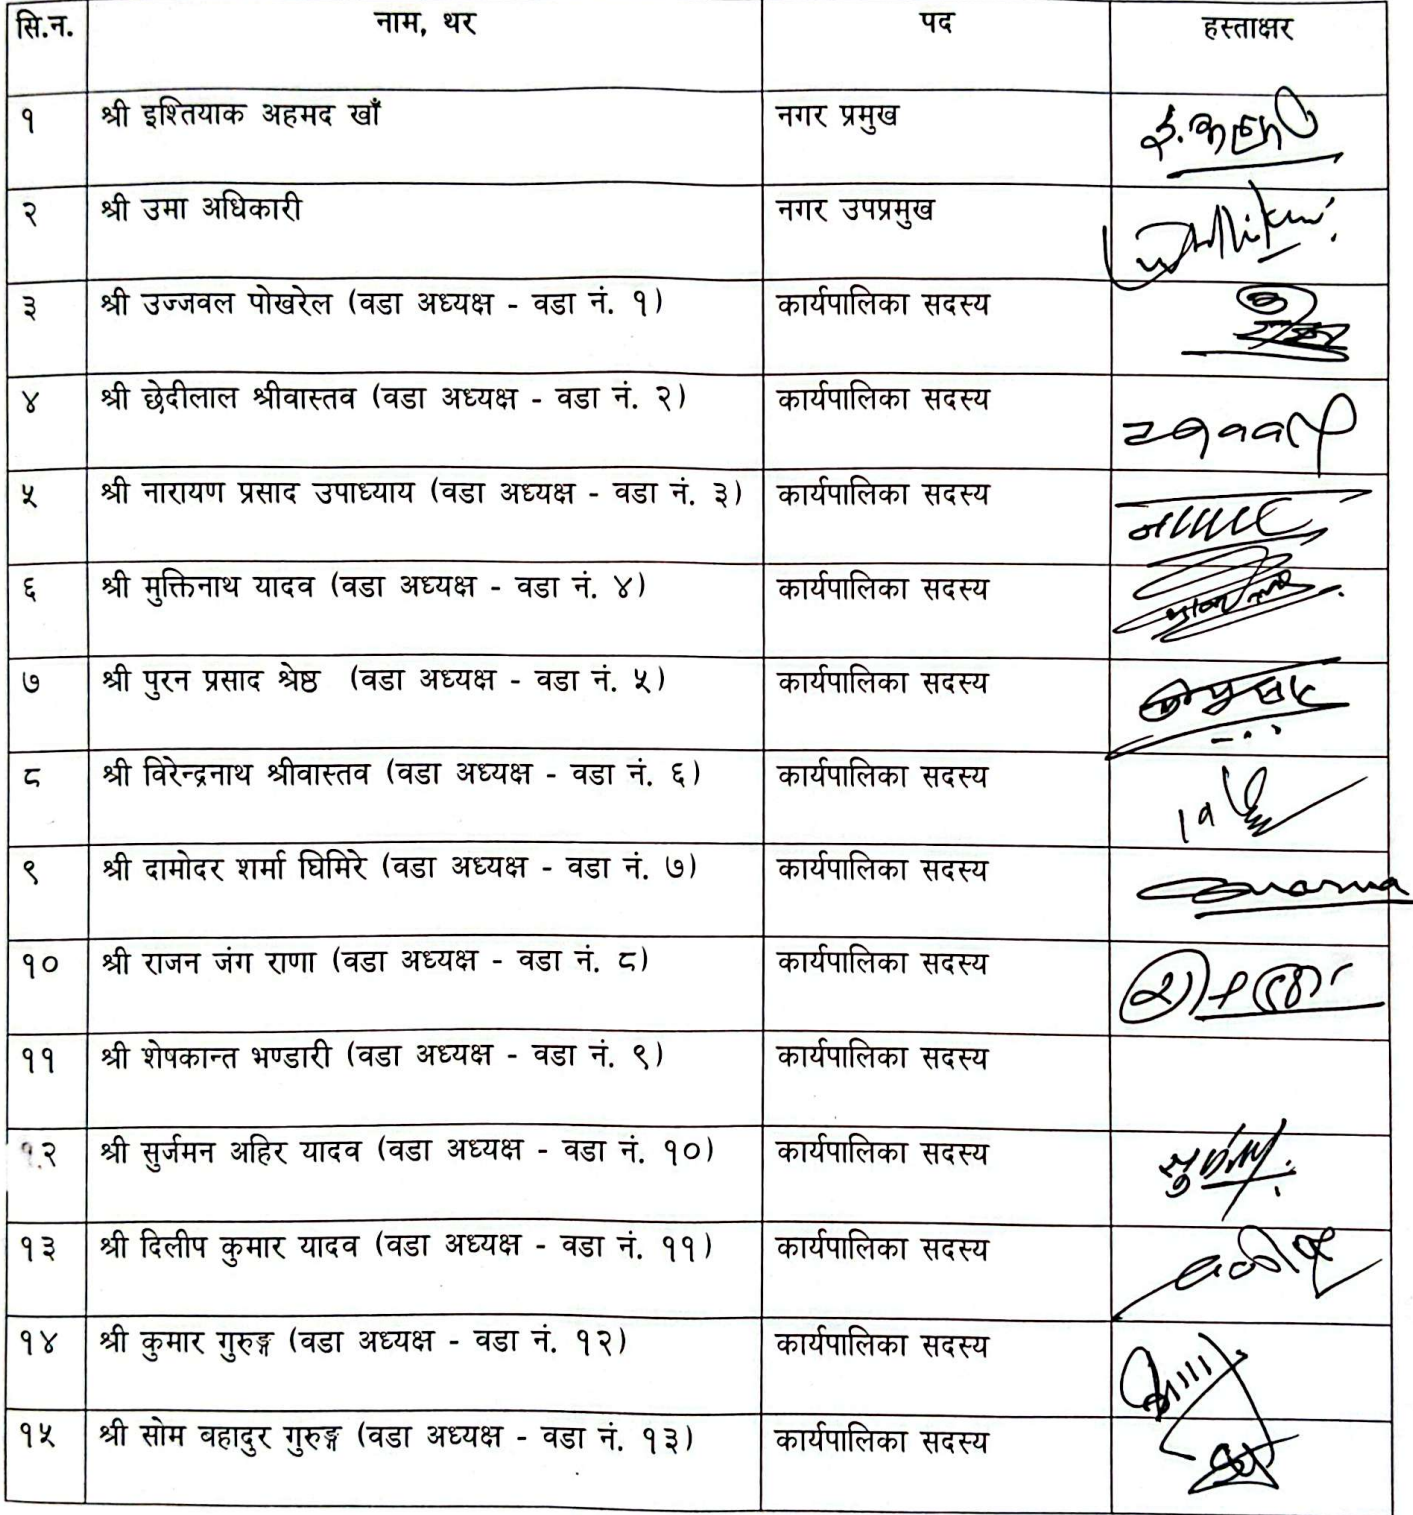 सि.न. नाम, थर पद हस्ताक्षर
१ श्री इश्तियाक अहमद खाँ नगर प्रमुख
२ श्री उमा अधिकारी नगर उपप्रमुख
३ श्री उज्जवल पोखरेल (वडा अध्यक्ष - वडा नं. १) कार्यपालिका सदस्य
४ श्री छेदीलाल श्रीवास्तव (वडा अध्यक्ष - वडा नं. २) कार्यपालिका सदस्य
५ श्री नारायण प्रसाद उपाध्याय (वडा अध्यक्ष - वडा नं. ३) कार्यपालिका सदस्य
६ श्री मुक्तिनाथ यादव (वडा अध्यक्ष - वडा नं. ४) कार्यपालिका सदस्य
७ श्री पुरन प्रसाद श्रेष्ठ (वडा अध्यक्ष - वडा नं. ५) कार्यपालिका सदस्य
८ श्री विरेन्द्रनाथ श्रीवास्तव (वडा अध्यक्ष - वडा नं. ६) कार्यपालिका सदस्य
९ श्री दामोदर शर्मा घिमिरे (वडा अध्यक्ष - वडा नं. ७) कार्यपालिका सदस्य
१० श्री राजन जंग राणा (वडा अध्यक्ष - वडा नं. ८) कार्यपालिका सदस्य
११ श्री शेषकान्त भण्डारी (वडा अध्यक्ष - वडा नं. ९) कार्यपालिका सदस्य
१२ श्री सुर्जमन अहिर यादव (वडा अध्यक्ष - वडा नं. १०) कार्यपालिका सदस्य
१३ श्री दिलीप कुमार यादव (वडा अध्यक्ष - वडा नं. ११) कार्यपालिका सदस्य
१४ श्री कुमार गुरुङ्ग (वडा अध्यक्ष - वडा नं. १२) कार्यपालिका सदस्य
१५ श्री सोम वहादुर गुरुङ्ग (वडा अध्यक्ष - वडा नं. १३) कार्यपालिका सदस्य